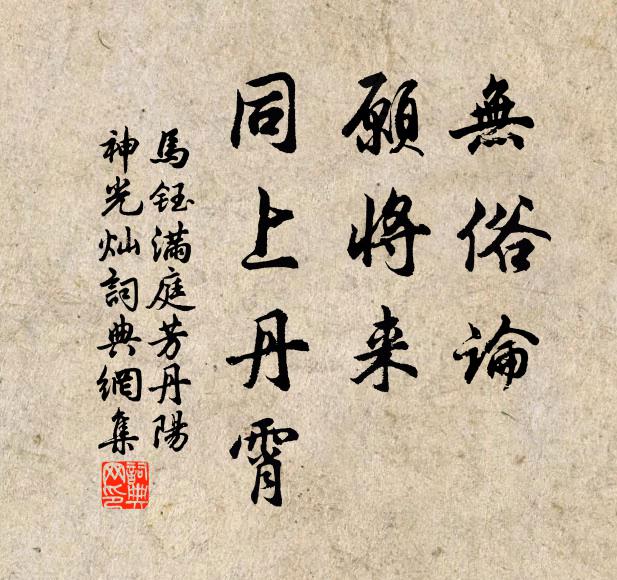 無俗論
願将来
同上丹霄
馬鈺滿庭芳丹陽
神光灿詞典網集
詞典网印